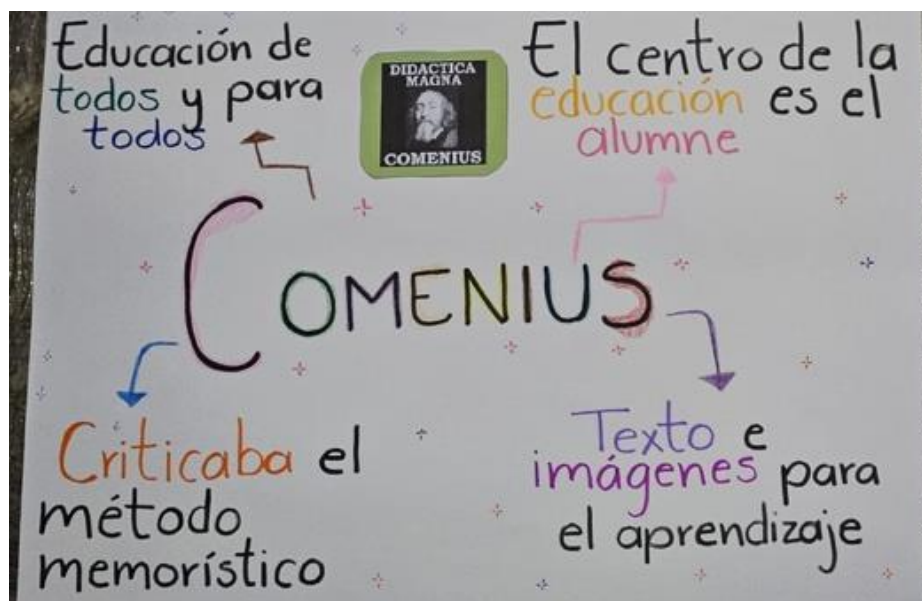 Educación de
todos y para
todos
DIDACTICA
MAGNA
COMENIUS
El centro de la
educación es el
alumne
COMENIUS
Criticaba el
método
memorístico
Texto e
imágenes para
el aprendizaje